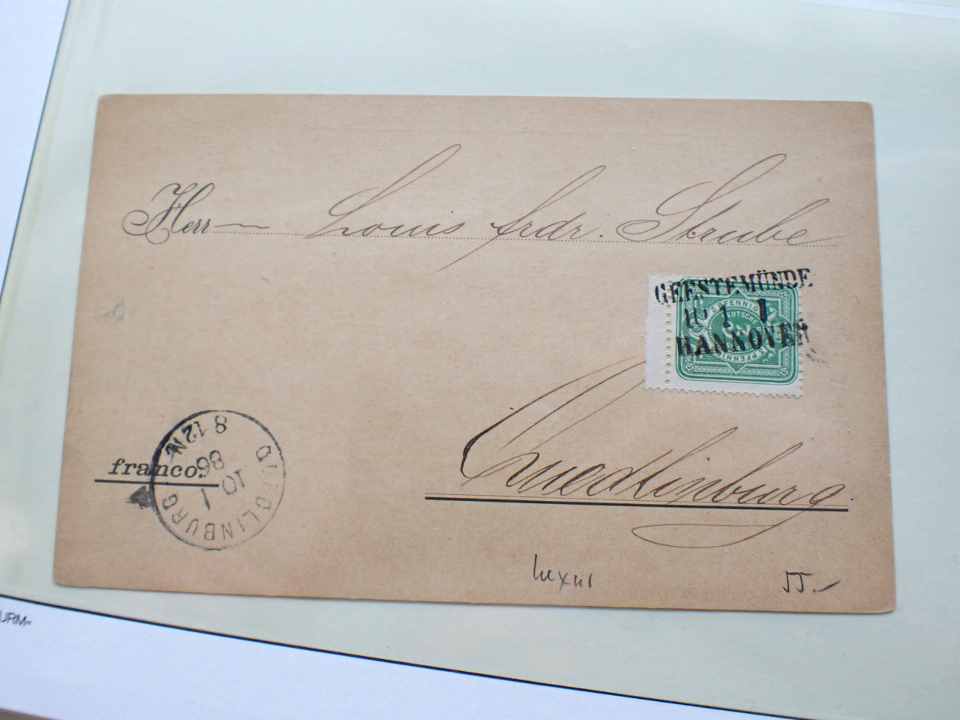 Herr Louis frdr. Strube
GEESTEMÜNDE
10 1
HANNOVER
PFENNIG
Quedlinburg.
franco.
QUEDLINBURG
10 1
86
8-12N.
luxus
55.-